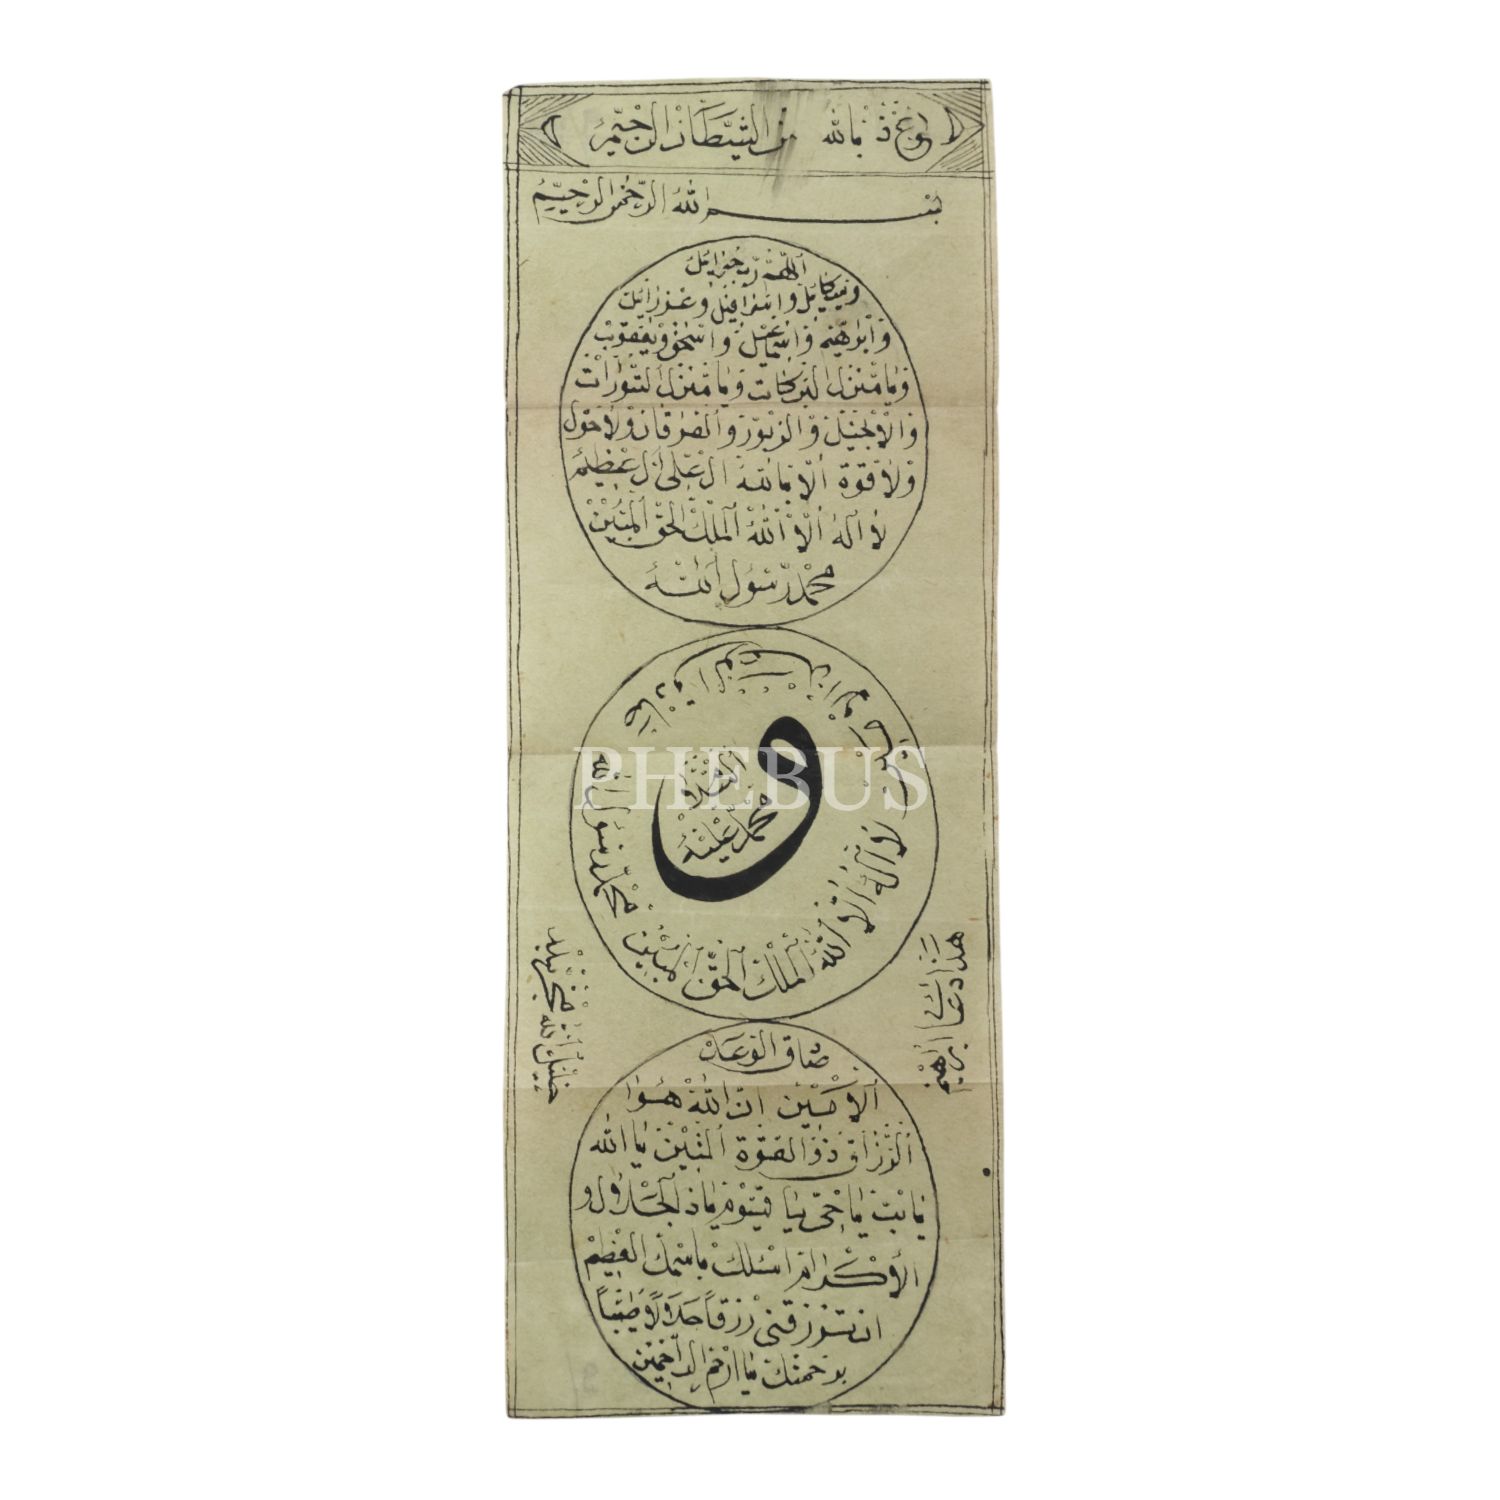 اعوذ بالله من الشيطان الرجيم
بسم الله الرحمن الرحيم
اللهم رب جبرائيل
وميكائيل واسرافيل وعزرائيل
وابراهيم واسماعيل واسحق ويعقوب
ويا منزل البركات ويا منزل التورات
والانجيل والزبور والفرقان ولا حول
ولا قوة الا بالله العلى العظيم
لا اله الا الله الملك الحق المبين
محمد رسول الله
لا اله الا الله الملك الحق المبين محمد رسول الله
و
محمد عليه
هذا دعاء ابراهيم
خليل الله
صادق الوعد
الامين ان الله هو ا
الرزاق ذو القوة المتين يا الله
يا رب يا حى يا قيوم يا ذالجلال و
الاكرام اسئلك باسمك العظيم
ان ترزقنى رزقاً حلالاً طيباً
برحمتك يا ارحم الراحمين
PHEBUS